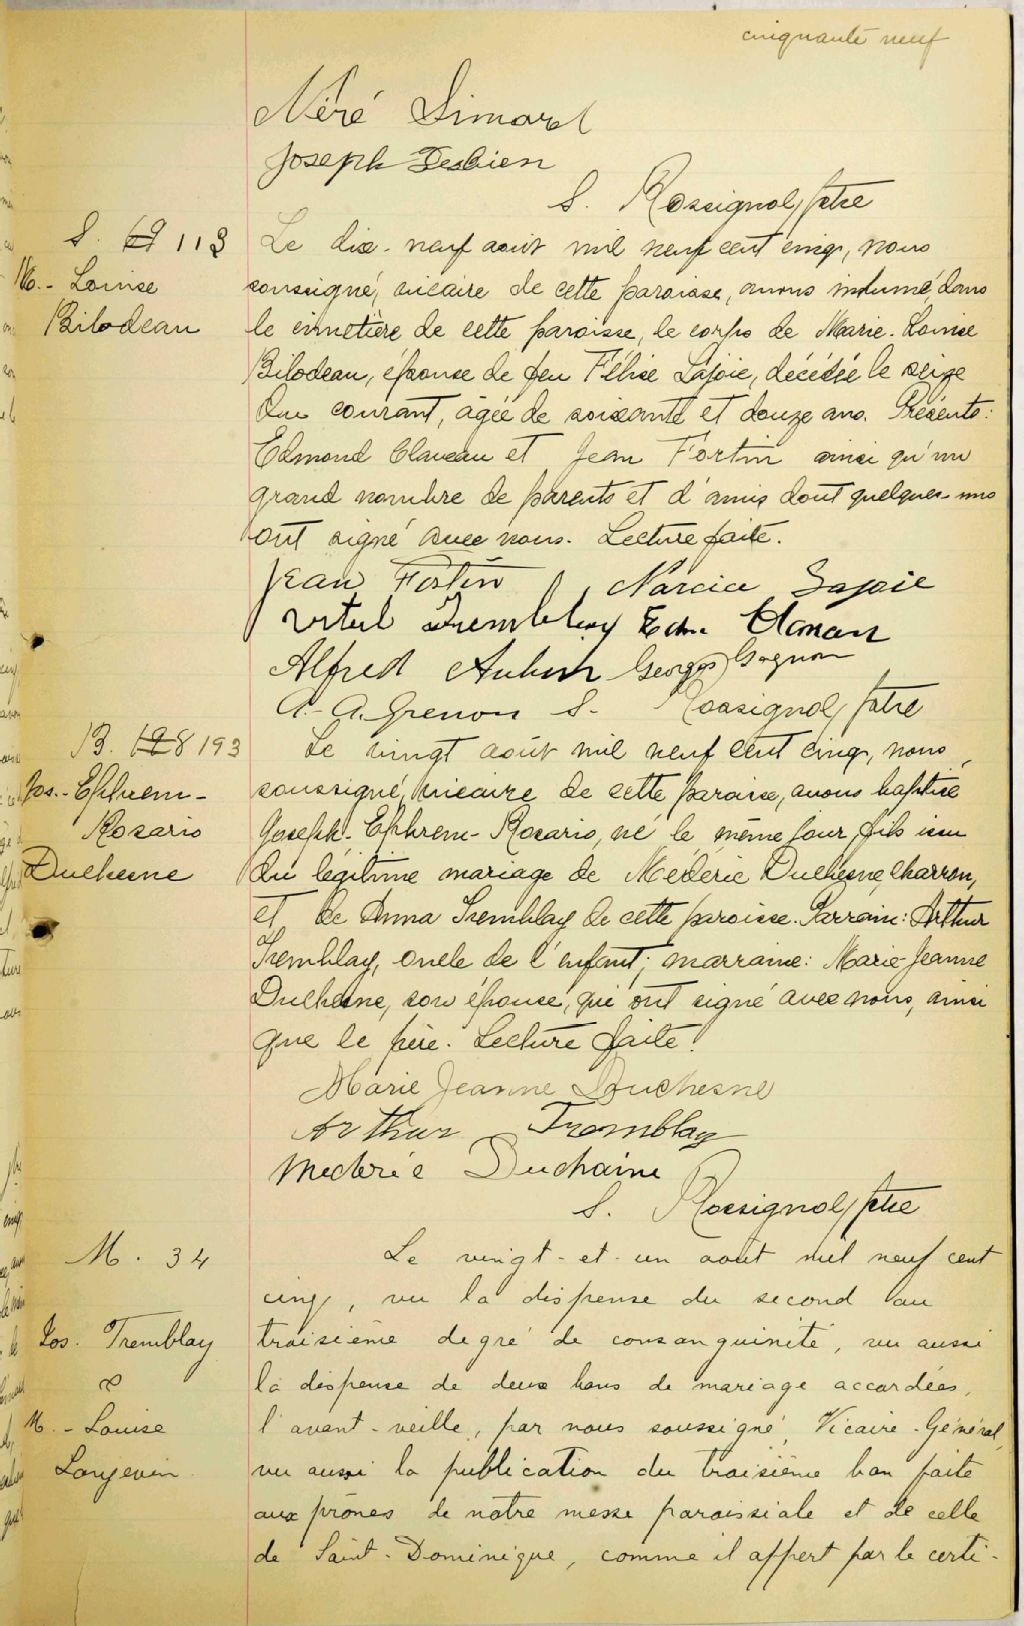 cinquante neuf
Néré Simard
Joseph Desbien
S. Rossignol, ptre
S. 113
M.- Louise
Bilodeau
Le dix-neuf août mil neuf cent cinq, nous
soussigné, vicaire de cette paroisse, avons inhumé, dans
le cimetière de cette paroisse, le corps de Marie-Louise
Bilodeau, épouse de feu Félix Lajoie, décédée le seize
du courant, âgée de soixante et douze ans. Présents:
Edmond Claveau et Jean Fortin ainsi qu'un
grand nombre de parents et d'amis dont quelques-uns
ont signé avec nous. Lecture faite.
Jean Fortin Narcice Lajoie
Vital Tremblay Edm.
Alfred Aubin Georges Gagnon
A.-A. Grenon S. Rossignol, ptre
B. 193
Jos.-Ephrem-
Rosario
Duchesne
Le vingt août mil neuf cent cinq, nous,
soussigné, vicaire de cette paroisse, avons baptisé
Joseph-Ephrem-Rosario, né le même jour, fils issu
du légitime mariage de Médéric Duchesne, charron,
et de Anna Tremblay de cette paroisse. Parrain: Arthur
Tremblay, oncle de l'enfant; marraine: Marie-Jeanne
Duchesne, son épouse, qui ont signé avec nous, ainsi
que le père. Lecture faite.
Marie Jeanne Duchesne
Arthur Tremblay
Mederic Duchaine
S. Rossignol, ptre
M. 34
Jos. Tremblay
&
M.-Louise
Langevin
Le vingt-et-un août mil neuf cent
cinq, vu la dispense du second au
troisième degré de consanguinité, vu aussi
la dispense de deux bans de mariage accordées,
l'avant-veille, par nous soussigné, Vicaire-Général,
vu aussi la publication du troisième ban faite
aux prônes de notre messe paroissiale et de celle
de Saint-Dominique, comme il appert par le certi-